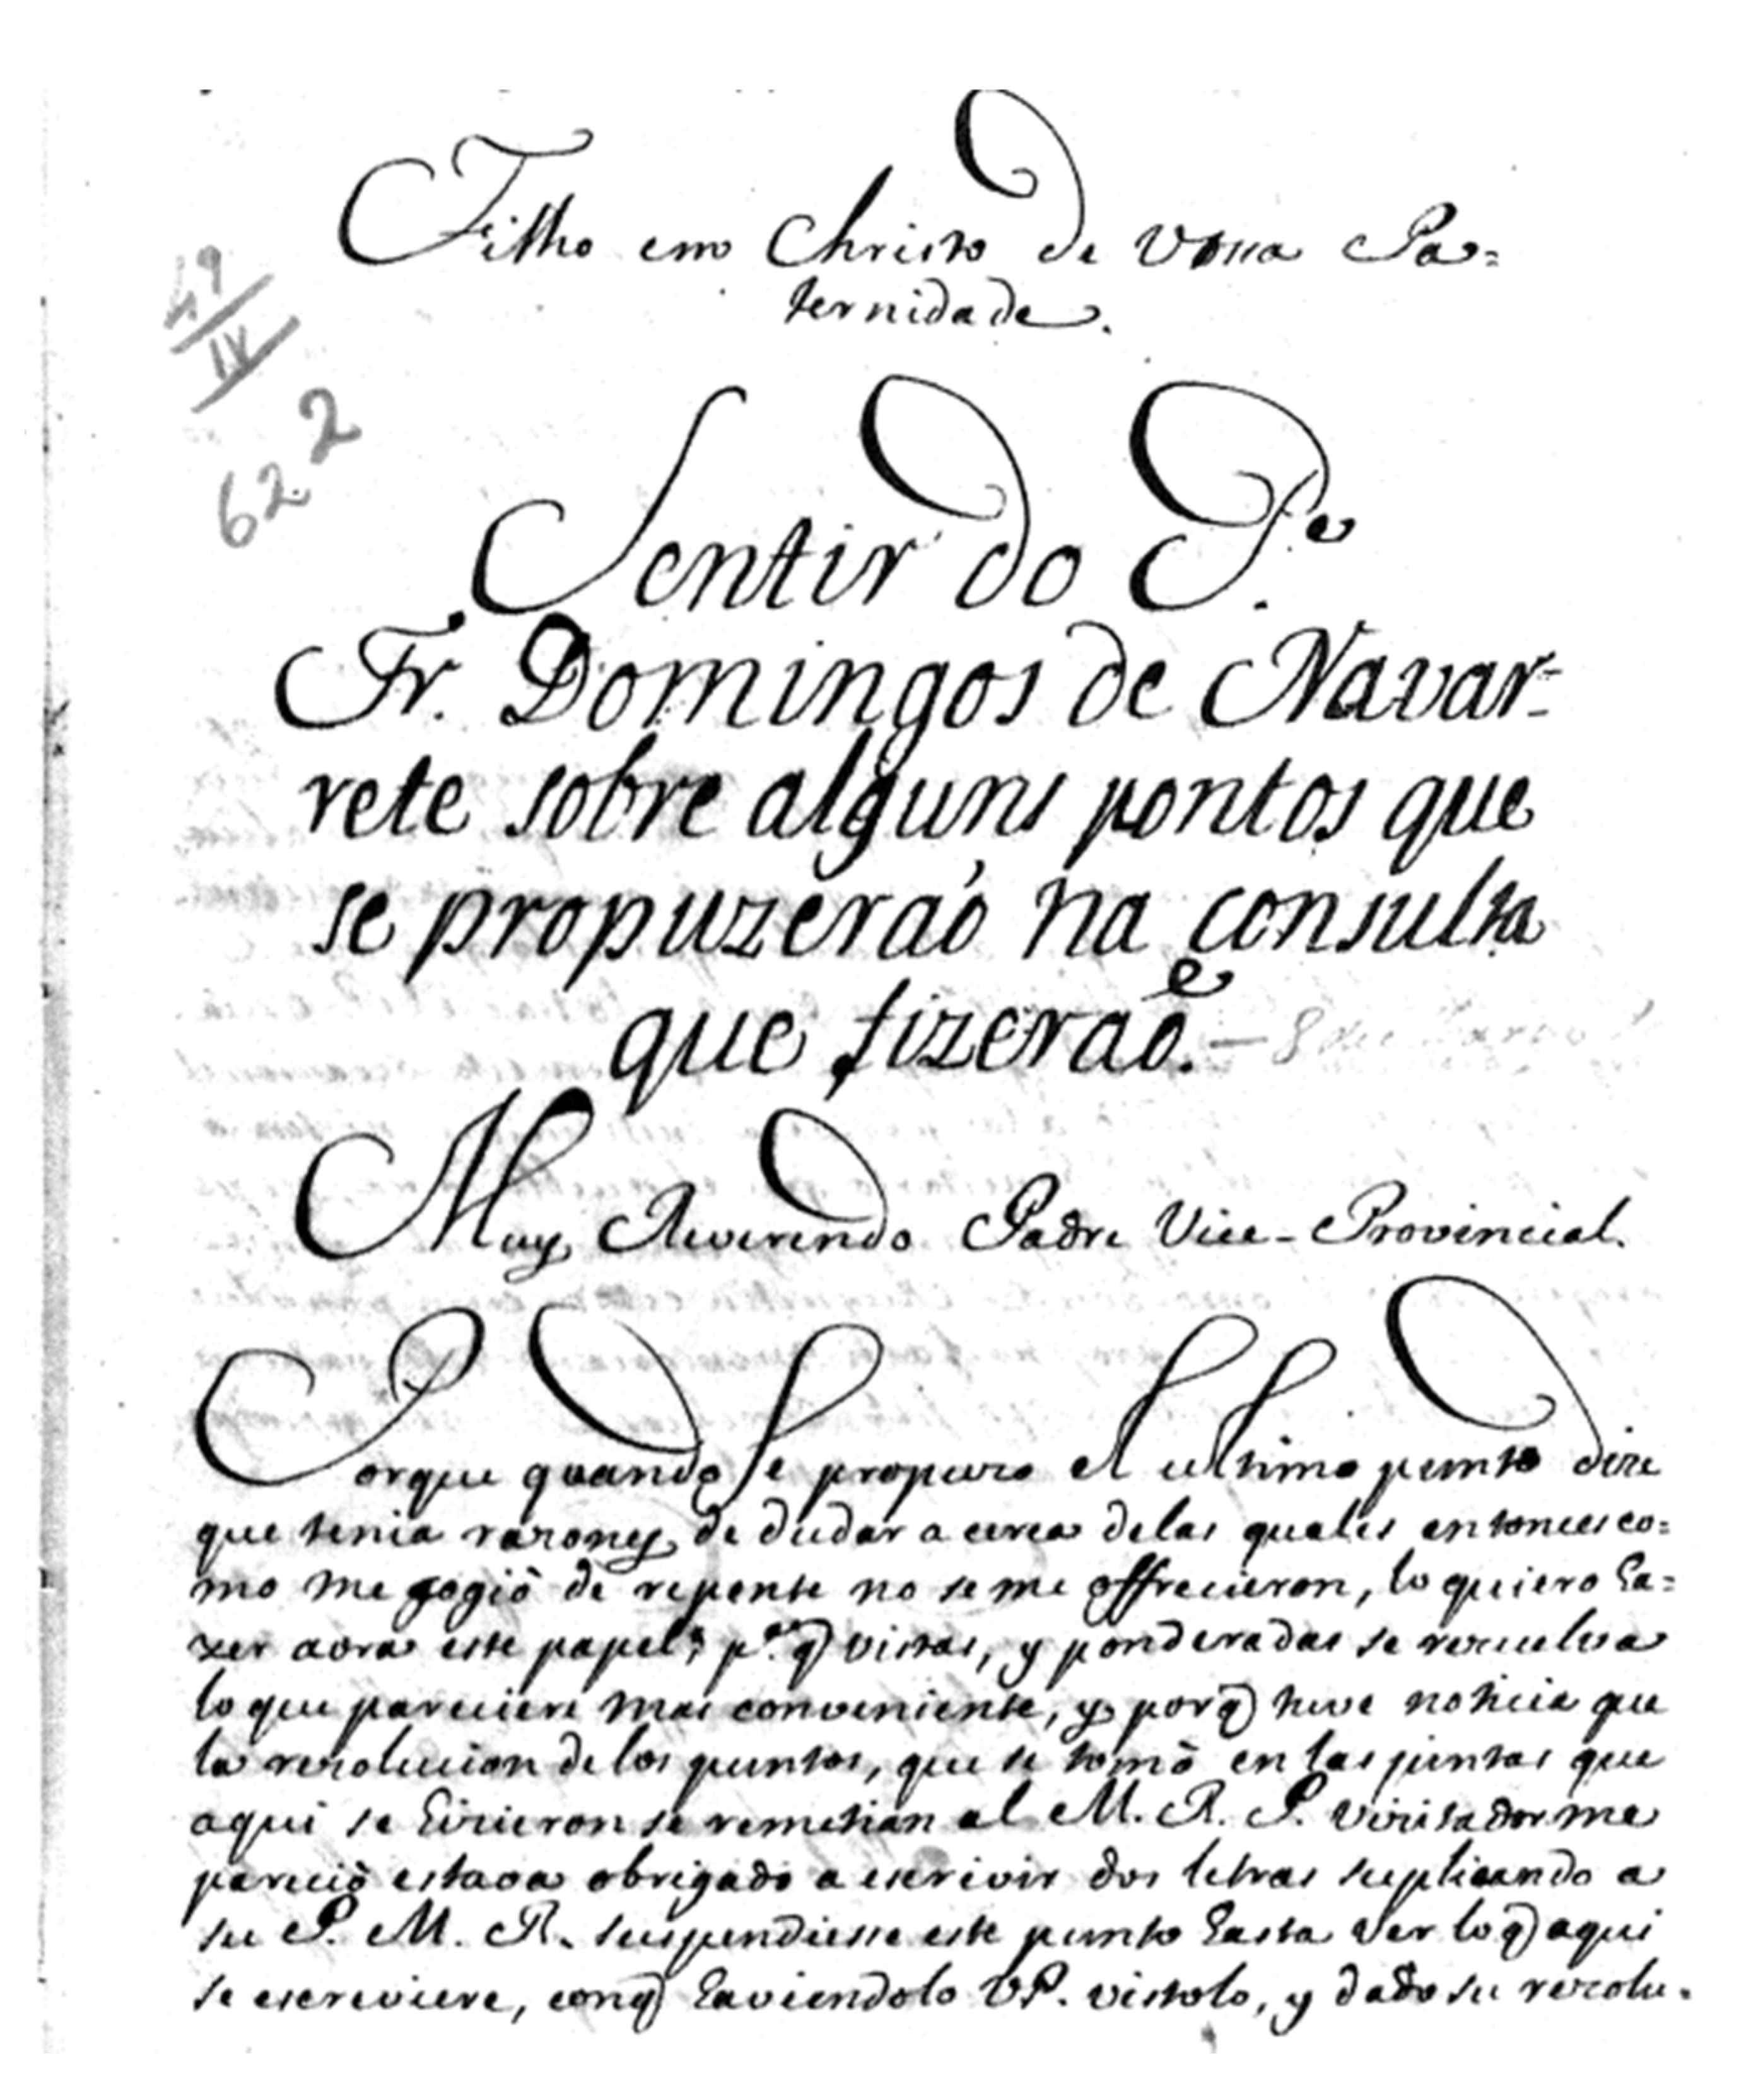 Filho em Christo de Vossa Pa=
ternidade.
49
IV
622
Sentir do P.e
Fr. Domingos de Navar-
rete sobre alguns pontos que
se propuzeraó na consulta
que fizeraõ.
Muy Reverendo Padre Vice-Provincial.
Porque quando se propuzo el ultimo punto dixe
que tenia razones de dudar acerca delas quales entonces co=
mo me cogiò de repente no se me offrecieron, lo quiero ha=
zer aora este papel, p.a q̃ vistas, y ponderadas se rezuelva
lo que pareciere mas conveniente, y porq̃ tuve noticia que
la rezolucion de los puntos, que se tomò en las juntas que
aqui se hizieron se remetian al M. R. P. Vizitador me
pareciò estava obrigado a escrivir dos letras suplicando a
su P. M. R. suspendiesse este punto hasta ver lo q̃ aqui
se escreviere, conq̃ haviendolo VP. vistolo, y dado su rezolu-